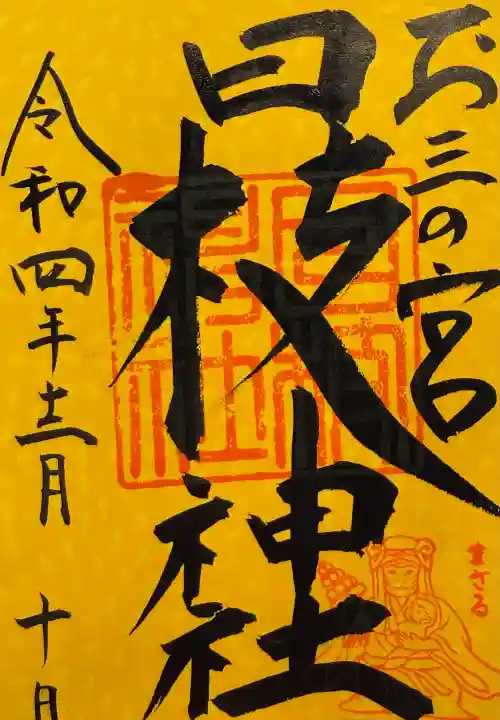 お三の宮
日枝神社
令和四年十二月 十日